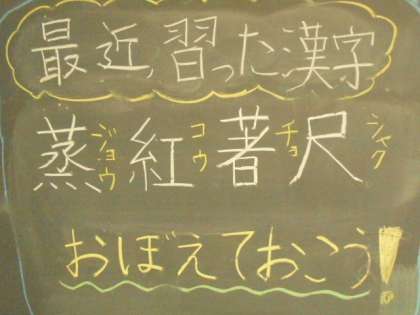 最近、習った漢字
蒸ジョウ紅コウ著チョ尺シャク
おぼえておこう!